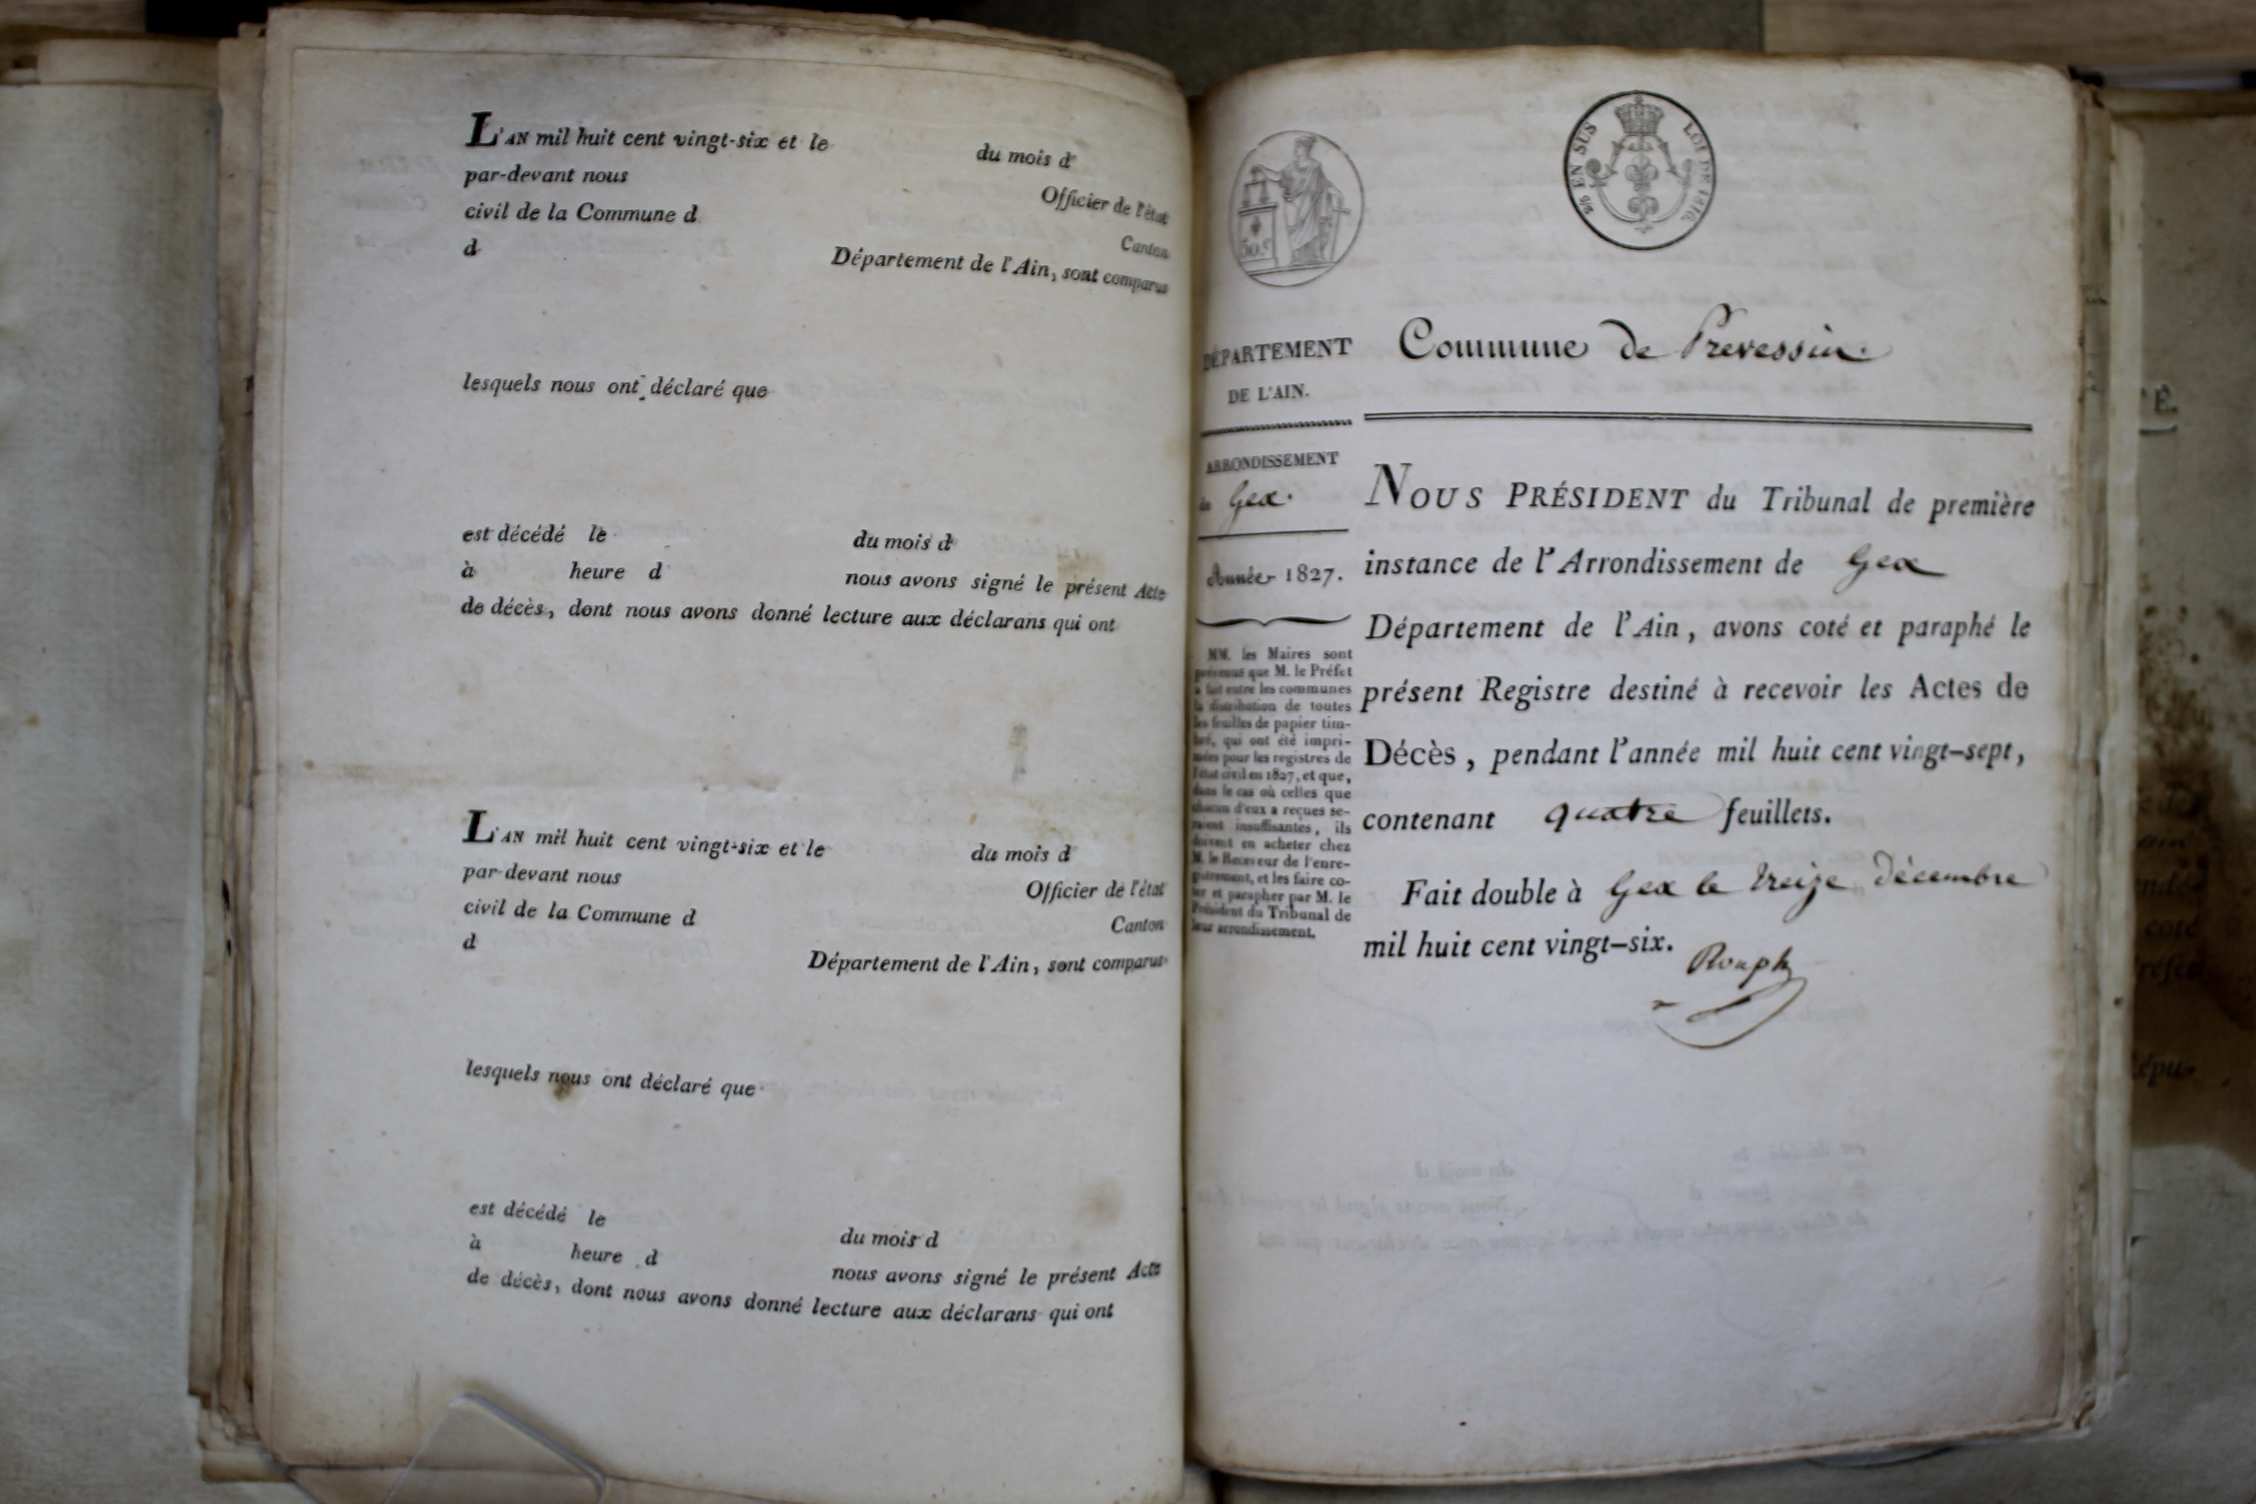 L'AN mil huit cent vingt-six et le du mois d
par-devant nous Officier de l'état
civil de la Commune d Canton
d Département de l'Ain, sont comparus
lesquels nous ont déclaré que
est décédé le du mois d
à heure d nous avons signé le présent Acte
de décès, dont nous avons donné lecture aux déclarans qui ont
L'AN mil huit cent vingt-six et le du mois d
par-devant nous Officier de l'état
civil de la Commune d Canton
d Département de l'Ain, sont comparus
lesquels nous ont déclaré que
est décédé le du mois d
à heure d nous avons signé le présent Acte
de décès, dont nous avons donné lecture aux déclarans qui ont
50.c
EN SUS LOI DE 1816
DÉPARTEMENT
DE L'AIN.
ARRONDISSEMENT
de Gex.
Année 1827.
MM. les Maires sont
prévenus que M. le Préfet
a fait entre les communes
la distribution de toutes
les feuilles de papier tim-
bré, qui ont été impri-
mées pour les registres de
l'état civil en 1827, et que,
dans le cas où celles que
chacun d'eux a reçues se-
raient insuffisantes, ils
doivent en acheter chez
M. le Receveur de l'enre-
gistrement, et les faire co-
ter et parapher par M. le
Président du Tribunal de
leur arrondissement.
Commune de Prevessin.
NOUS PRÉSIDENT du Tribunal de première
instance de l'Arrondissement de Gex
Département de l'Ain, avons coté et paraphé le
présent Registre destiné à recevoir les Actes de
Décès, pendant l'année mil huit cent vingt-sept,
contenant quatre feuillets.
Fait double à Gex le treize décembre
mil huit cent vingt-six.
Rouph